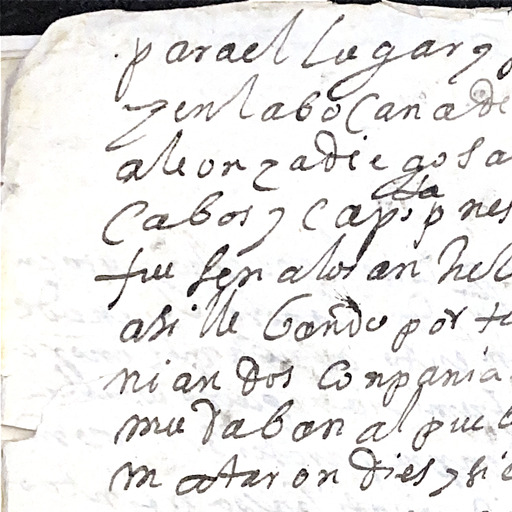 para el lugar y
y en la bocana de
aleonza diego sa
Cabos y capp.ta nes
fue señalos an hel
asi lle Gando por te
nian dos conpania
mudaban al pueb
mataron dies y sie